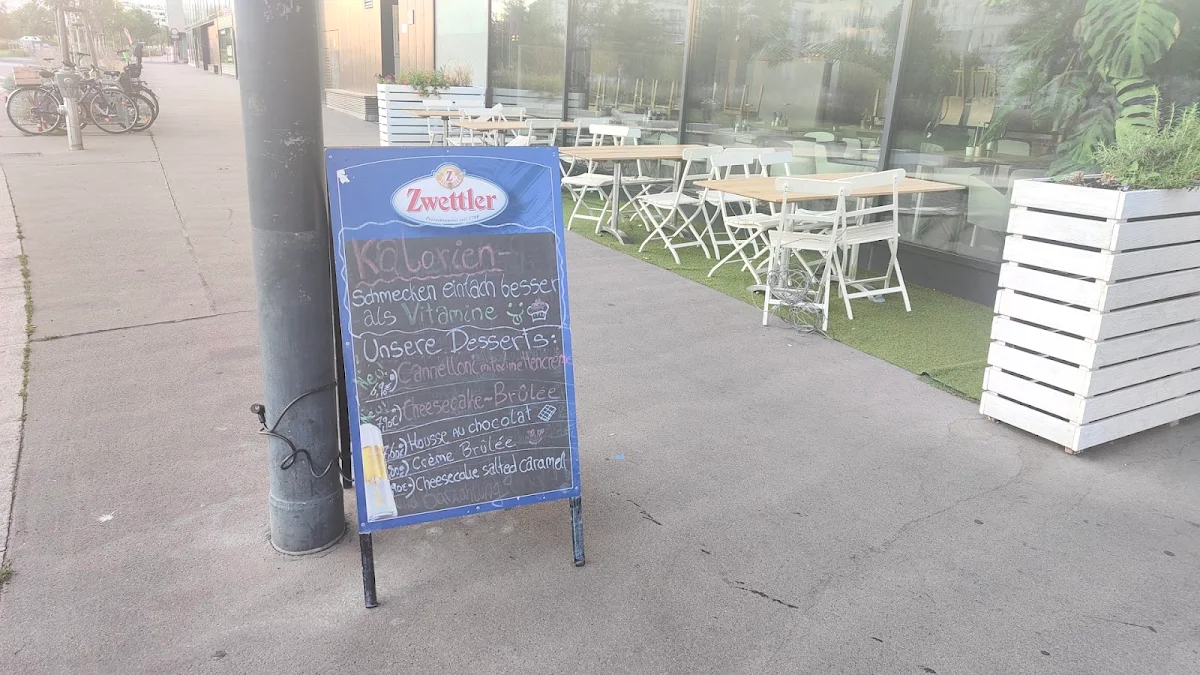 Zwettler
Kalorien-
schmecken einfach besser
als Vitamine
Unsere Desserts:
Neu! 6,90€) Cannelloni mit Limettencreme
Cheesecake-Brûlée
Mousse au chocolat
Crème Brûlée
Cheesecake salted caramel